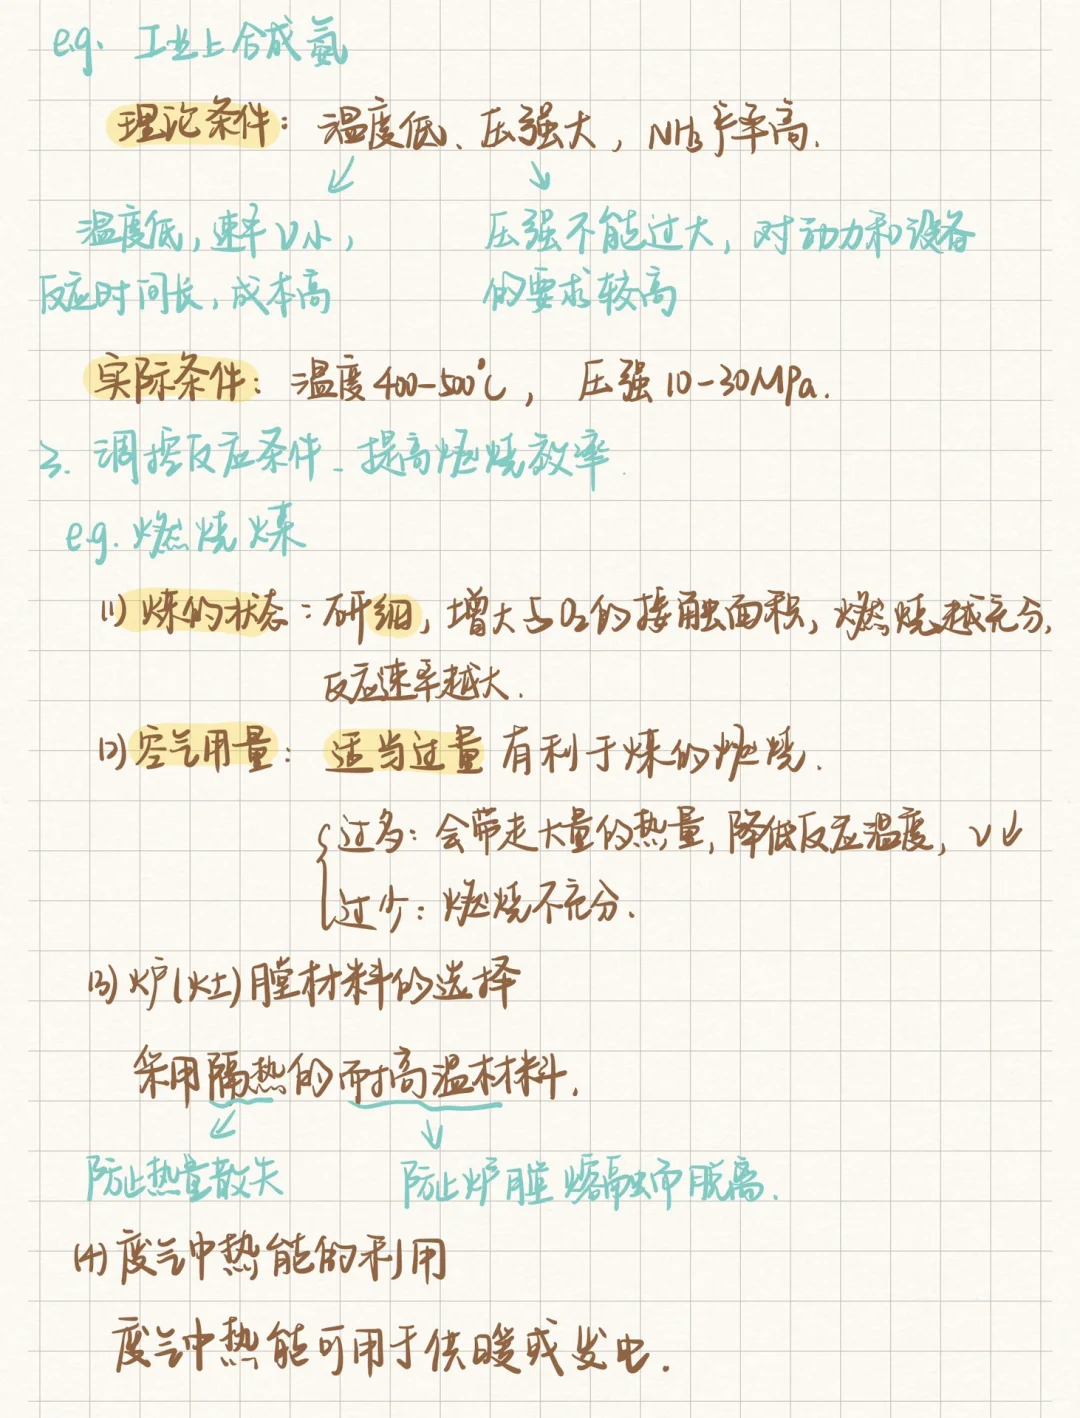 e.g. 工业上合成氨
理论条件：温度低、压强大，NH₃产率高.
↙ ↘
温度低，速率v小， 压强不能过大，对动力和设备
反应时间长，成本高 的要求较高
实际条件：温度400-500℃， 压强10-30MPa.
3. 调控反应条件-提高燃烧效率.
e.g. 燃烧煤
(1) 煤的状态：研细，增大与O₂的接触面积，燃烧越充分，
反应速率越大.
(2) 空气用量：适当过量 有利于煤的燃烧.
过多：会带走大量的热量，降低反应温度，v↓
过少：燃烧不充分.
(3) 炉(灶)膛材料的选择
采用隔热的耐高温材料.
↙ ↓
防止热量散失 防止炉膛熔融而脱离.
(4) 废气中热能的利用
废气中热能可用于供暖或发电.